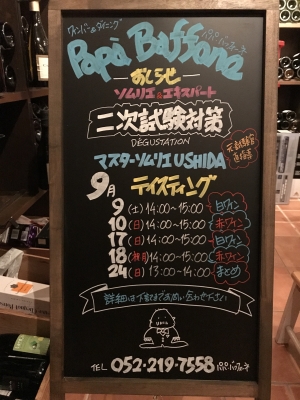 ワインバー&ダイニング
Papà Baffone パパバッフォーネ
-おしらせ-
ソムリエ&エキスパート
二次試験対策
DÉGUSTATION
マスターソムリエ USHIDA
元試験官
9月 テイスティング
9(土)14:00~15:00 白ワイン
10(日)14:00~15:00 赤ワイン
17(日)14:00~15:00 白ワイン
18(祝月)14:00~15:00 赤ワイン
24(日)13:00~14:00 まとめ
詳細は下記までお問い合わせ下さい
TEL 052-219-7558 パパバッフォーネ